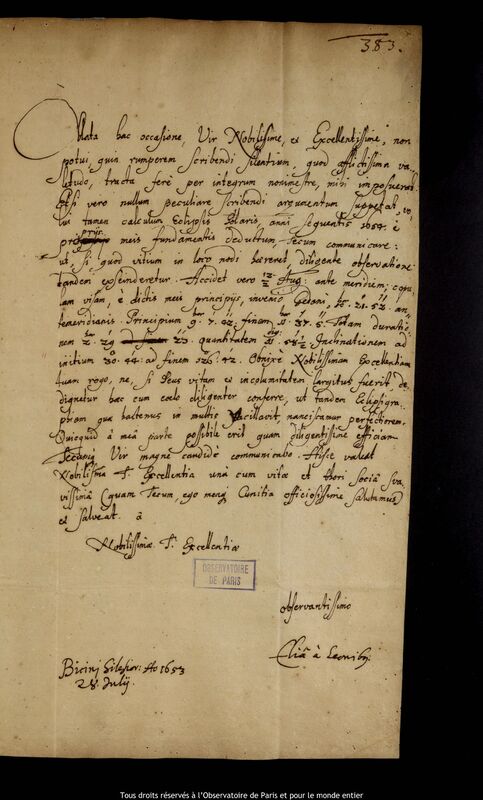 383.
Oblata hac occasione, Vir Nobilissime, et Excellentissime, non
potui, quin rumperem scribendi silentium, quod afflictissima va
letudo, tracta ferè per integrum nonimestre, mihi imposuerat.
Etsi vero nullum peculiare scribendi argumentum suppetat, vo
lui tamen calculum Eclipsis Solaris anni sequentis 1654. è
prijs meis fundamentis deductum, Tecum communicare:
ut, si quod vitium in loco nodi haereret, diligente observatione
tandem expenderetur. Accidet vero 12/2 Aug: ante meridiem; copu
lam visam, è dictis meis principijs, invenio Gedani, H. 21. 52. an
temeridianis. Principium 9. 7. 02. finem 11. 37. 5. Totam duratio
nem 2. 29 23. quantitatem dig. 11. 54 1/2 Inclinationem ad
initium 30. 44. ad finem 126. 42. Obnixè Nobilissimam Excellentiam
tuam rogo, ne, si Deus vitam et incolumitatem largitus fuerit, de
dignetur hac cum coelo diligenter conferre, ut tandem Eclipsigra
phiam quae hactenus in multis vacillavit, nanciscamur perfectiorem.
Quicquid à meâ parte possibile erit quam diligentissime efficiam
Tecumq Vir magne candidè communicabo. Hisce valeat
Nobilissima T. Excellentia unà cum vitae et thori sociâ sua
vissimâ (quam Tecum, ego meaq Cunitia officiosissime salutamus)
et salveat. à
Nobilissimae T. Excellentiae
OBSERVATOIRE
DE PARIS
observantissimo
Eliâ à Leonibq.
Bicinj Silesior: Ao 1653
28 Julij.
Tous droits réservés à l'Observatoire de Paris et pour le monde entier